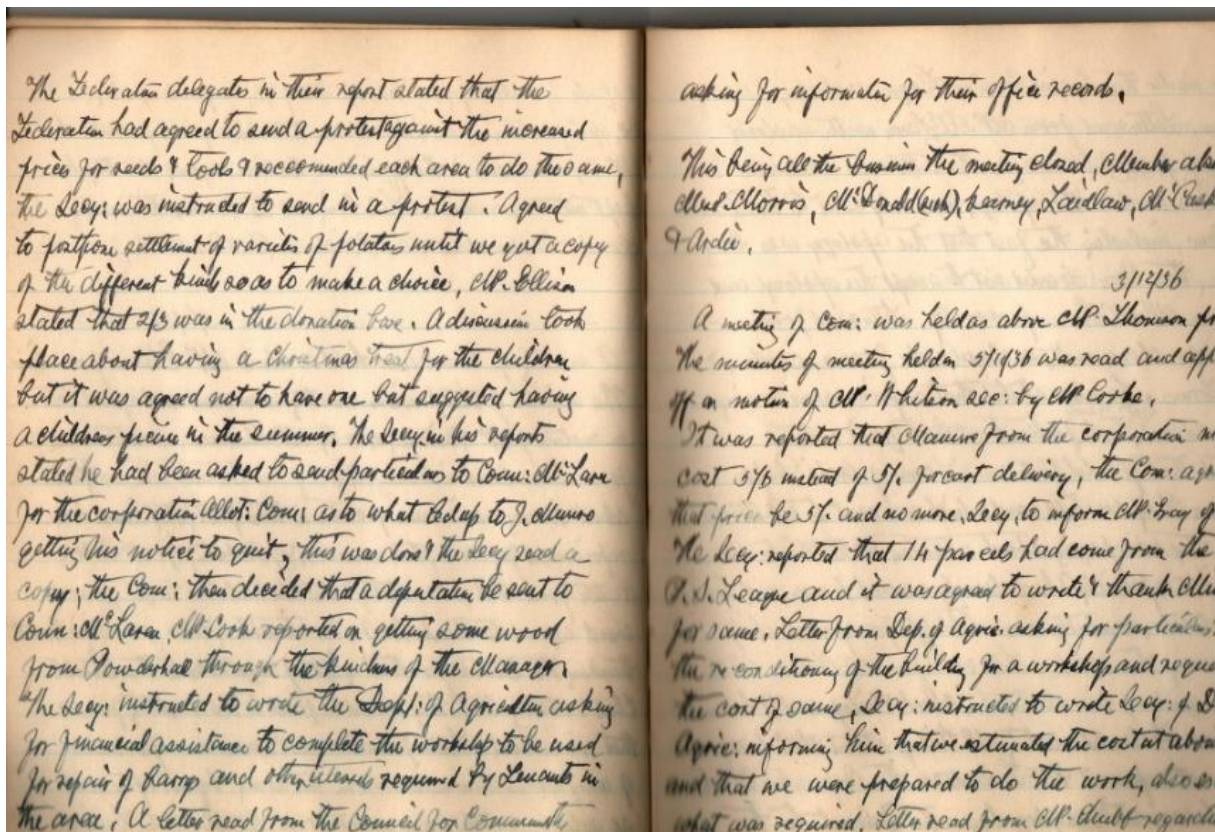 The Federation delegates in their report stated that the
Federation had agreed to send a protest against the increased
prices for seeds & tools & reccomended each area to do the same,
the Secy: was instructed to send in a protest. Agreed
to postpone settlement of varieties of potatoes until we got a copy
of the different kinds so as to make a choice, Mr. Ellison
stated that 2/3 was in the donation box. A discussion took
place about having a Christmas treat for the children
but it was agreed not to have one but suggested having
a childrens picnic in the summer. The Secy in his reports
stated he had been asked to send particulars to Coun: McLaren
for the corporation Allot: Com: as to what led up to J. Munro
getting his notice to quit, this was done & the Secy read a
copy; the Com: then decided that a deputation be sent to
Coun: McLaren Mr. Cook reported on getting some wood
from Powderhall through the kindness of the Manager.
The Secy: instructed to write the Dept: of Agriculture asking
for financial assistance to complete the workshop to be used
for repair of barrys and other utensils required by Tenants in
the area. A letter read from the Council for Community
asking for information for their office records.
This being all the business the meeting closed, Member abs
Morris, McDonald Kearney, Laidlaw,
& Ardie.
3/12/36
A meeting of Com: was held as above Mr. Thomson pr
The minutes of meeting held on was read and app
of on motion of Mr. Whitson sec: by Mr Cooke.
It was reported that Manure from the corporation
cost 5/6 instead of 5/. for cart delivery, the Com: agr
that price be 5/. and no more, Secy, to inform Mr. Gray of
The Secy: reported that 14 parcels had come from the
League and it was agreed to write & thank
for same. Letter from Dep. of Agric. asking for particulars
the reconditioning of the building for a workshop and reque
the cost of same, Secy: instructed to write Secy: of D
Agric: informing him that we estimated the cost at abou
and that we were prepared to do the work, also
what was required. Letter read from Mr. Chubb regardi